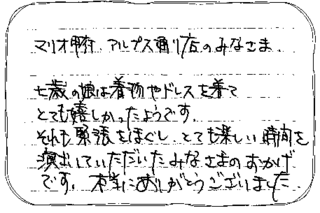 スタジオマリオ 甲府 アルプス通り店のみなさま
七歳の娘は着物やドレスを着て
とても嬉しかったようです。
それも緊張をほぐし、とても楽しい時間を
演出していただいたみなさまのおかげ
です。本当にありがとうございました